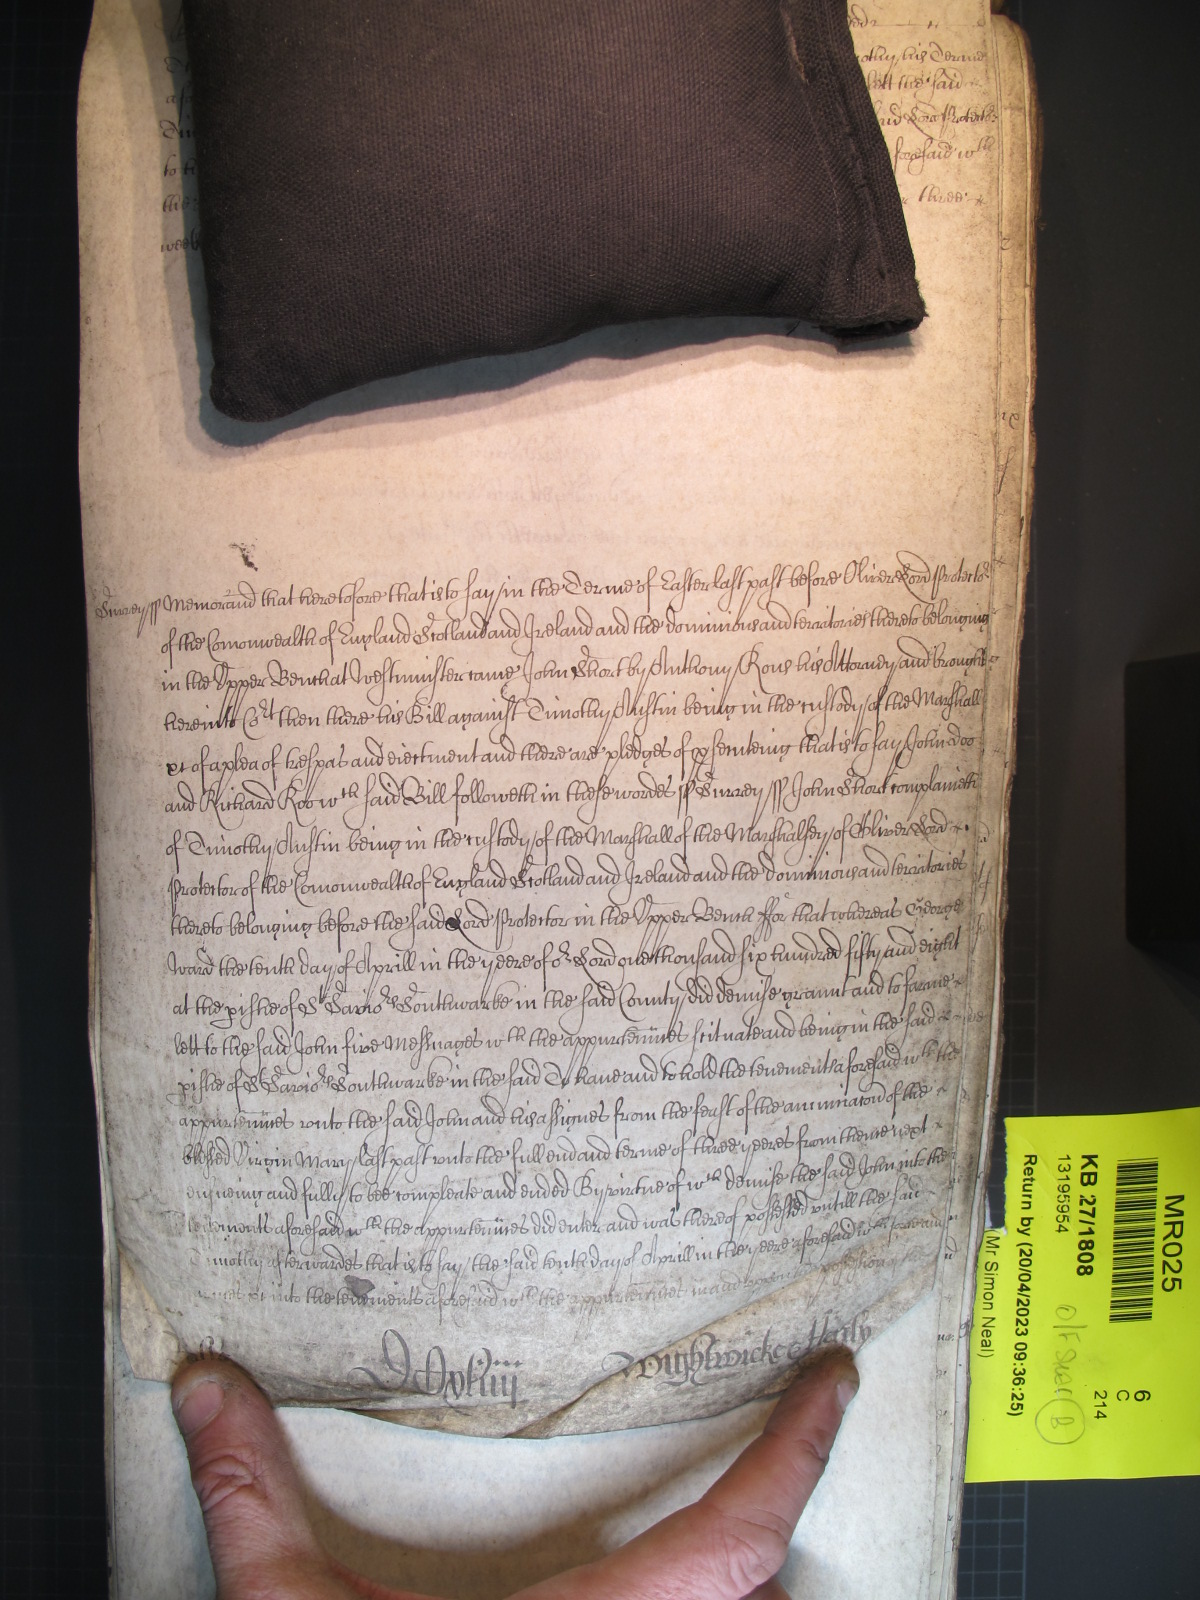 othy his Terme
lett the said
said Lord Protector
foresaid wth
three
to t
the
week
Surrey ss Memorand that heretofore that is to say in the Terme of Easter last past before Oliver Lord Protector
of the Comonwealth of England Scotland and Ireland and the dominions and territories thereto belonging
in the Upper Bench at Westminster came John Short by Anthony Rous his Attorney and brought
here into Cort then there his Bill against Timothy Austin being in the custody of the Marshall
&c of a plea of trespas and eiectment and there are pledges of psecuteing that is to say John doo
and Richard Roo wch said Bill followeth in these wordes ss Surrey ss John Short complaineth
of Timothy Austin being in the custody of the Marshall of the Marshalsey of Oliver Lord
Protector of the Comonwealth of England Scotland and Ireland and the dominions and territories
thereto belonging before the said Lord Protector in the Upper Bench ffor that whereas George
Ward the tenth day of Aprill in the yeere of or Lord one thousand six hundred fifty and eight
at the pishe of St Saviors Southwarke in the said County did demise graunt and to farme
lett to the said John five Messuages wth the appurtennces scituate and being in the said
pishe of St Saviors Southwarke in the said To have and to hold the tenements aforesaid wth the
appurtennces unto the said John and his assignes from the feast of the annunciacon of the
blessed Virgin Mary last past unto the full end and terme of three yeeres from thence next
ensueing and fully to bee compleate and ended By virtue of wch demise the said John into the
tenements aforesaid wth the appurtennces did enter and was thereof possessed untill the said
Timothy afterwardes that is to say the said tenth day of Aprill in the yeere aforesaid wth force and
armes &c into the tenements aforesaid wth the appurtennces in and upon the possession
Wightwicke & Henly
MR025
6
C
214
KB 27/1808
13195954
Return by (20/04/2023 09:36:25)
(Mr Simon Neal)